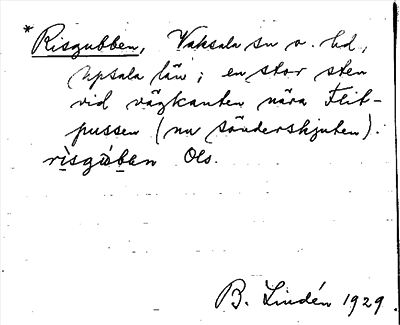 *Risgubben, Vaksala sn o. hd,
Upsala län; en stor sten
vid vägkanten nära Flit-
pussen (nu sönderskjuten).
rìsgùban Ols.
B. Lindén 1929.